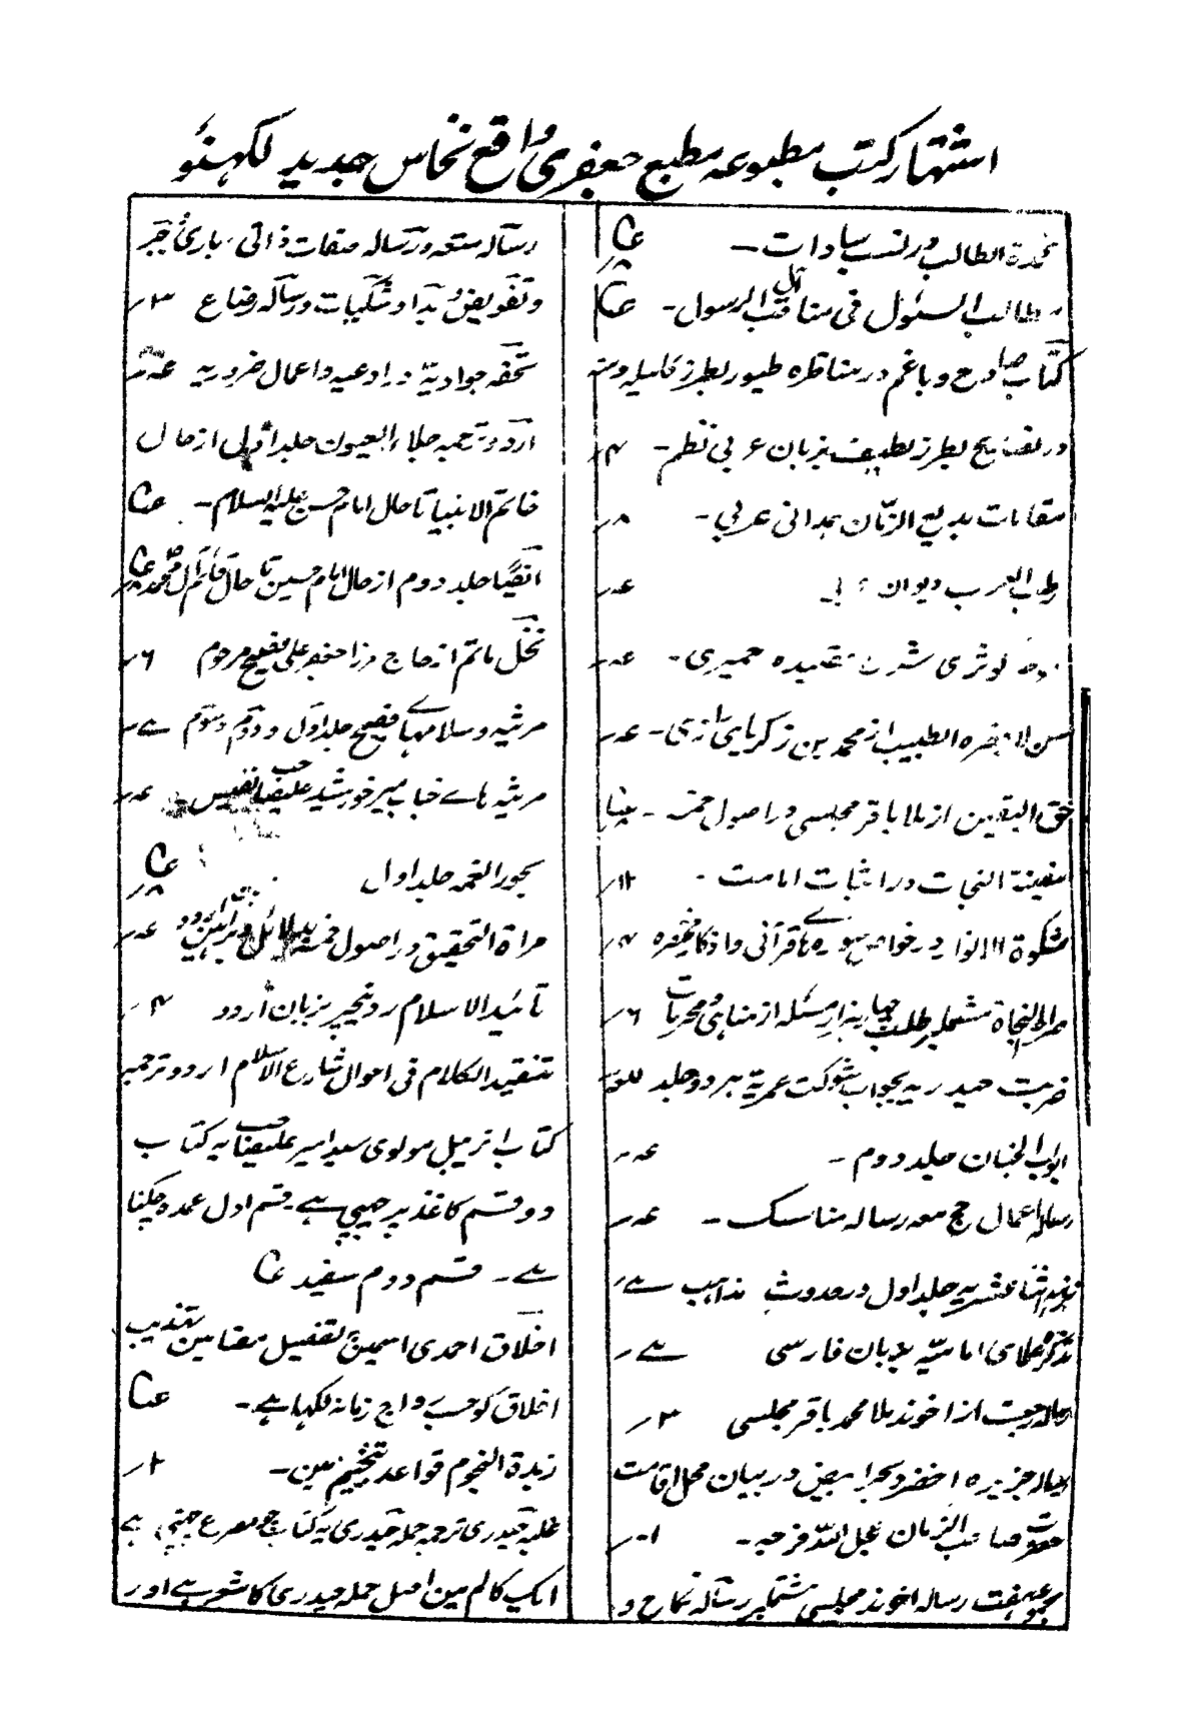 اشتہار کتب مطبوعہ مطبع جعفری واقع نخاس جدید لکہنؤ
عمدة الطالب در نسب سادات -
مطالب السئول فی مناقب آل الرسول -
کتاب صادح و باغم در مناظرہ طیور بطرز کلیلہ و
در نصایح بطرز لطیف بزبان عربی نظم - ۴ر
مقامات بدیع الزمان ہمدانی عربی - ۸ر
دیوان عہ ر
شرح قصیدہ حمیری - عہ ر
من لا یحضرہ الطبیب از محمد بن زکریای رازی - عہ ر
حق الیقین از ملا باقر مجلسی در اصول خمسہ -
سفینة النجات در اثبات امامت - ۱۲ر
مشکوة الانوار در خواص سورہ ہاے قرآنی و اذکار ۴ر
صراط النجاة مشتمل بر مطلب چہار ہزار مسئلہ از مناہی و مجربات ۶ر
ضربت حیدریہ بجواب شوکت عمریہ ہر دو جلد
ابواب الجنان جلد دوم - عہ ر
رسالہ اعمال حج معہ رسالہ مناسک - عہ ر
اثنا عشریہ جلد اول در حدوث مذاہب
تذکرہ علمای امامیہ بزبان فارسی
رسالہ رجعت از اخوند ملا محمد باقر مجلسی ۳ر
رسالہ جزیرہ اخضر و بحر ابیض در بیان محل اقامت
حضرت صاحب الزمان عجل اللہ فرجہ - ۱۰ر
مجموعہ ہفت رسالہ اخوند مجلسی مشتمل بر رسالہ نکاح و
رسالہ متعہ و رسالہ صفات ذاتی باری و جبر
و تفویض و بدا و شکیات و رسالہ رضاع ۳ر
تحفہ جوادیہ در ادعیہ و اعمال ضروریہ
اردو ترجمہ جلاء العیون جلد اول از حال
خاتم الانبیا تا حال امام حسن علیہ السلام -
ایضًا جلد دوم از حال امام حسین تا حال قائم آل محمد
نخل ماتم از حاج مرزا جعفر علی فصیح مرحوم ۶ر
مرثیہ و سلامہاے فصیح جلد اول و دوم و سوم
مرثیہ ہاے جناب میر خورشید علیصاحب نفیس عہ ر
بحور الغمہ جلد اول
مراة التحقیق در اصول خمسہ بدلائل و براہین اردو عہ ر
تائید الاسلام رد نیچر بزبان اردو ۴ر
تنقید الکلام فی احوال شارع الاسلام اردو ترجمہ
کتاب انرمیبل مولوی سید امیر علیصاحب یہ کتاب
دو قسم کاغذ پر چھپی ہے - قسم اول عمدہ چکنا
ہے - قسم دوم سفید
اخلاق احمدی اسمین تفصیل مضامین تہذیب
اخلاق کو حسب رواج زمانہ لکہا ہے -
زبدة النجوم قواعد تنجیم مین - ۲ر
غلبہ حیدری ترجمہ حملہ حیدری یہ کتاب جو مصرع چھپی ہے
ایک کالم مین اصل حملہ حیدری کا شعر ہے اور